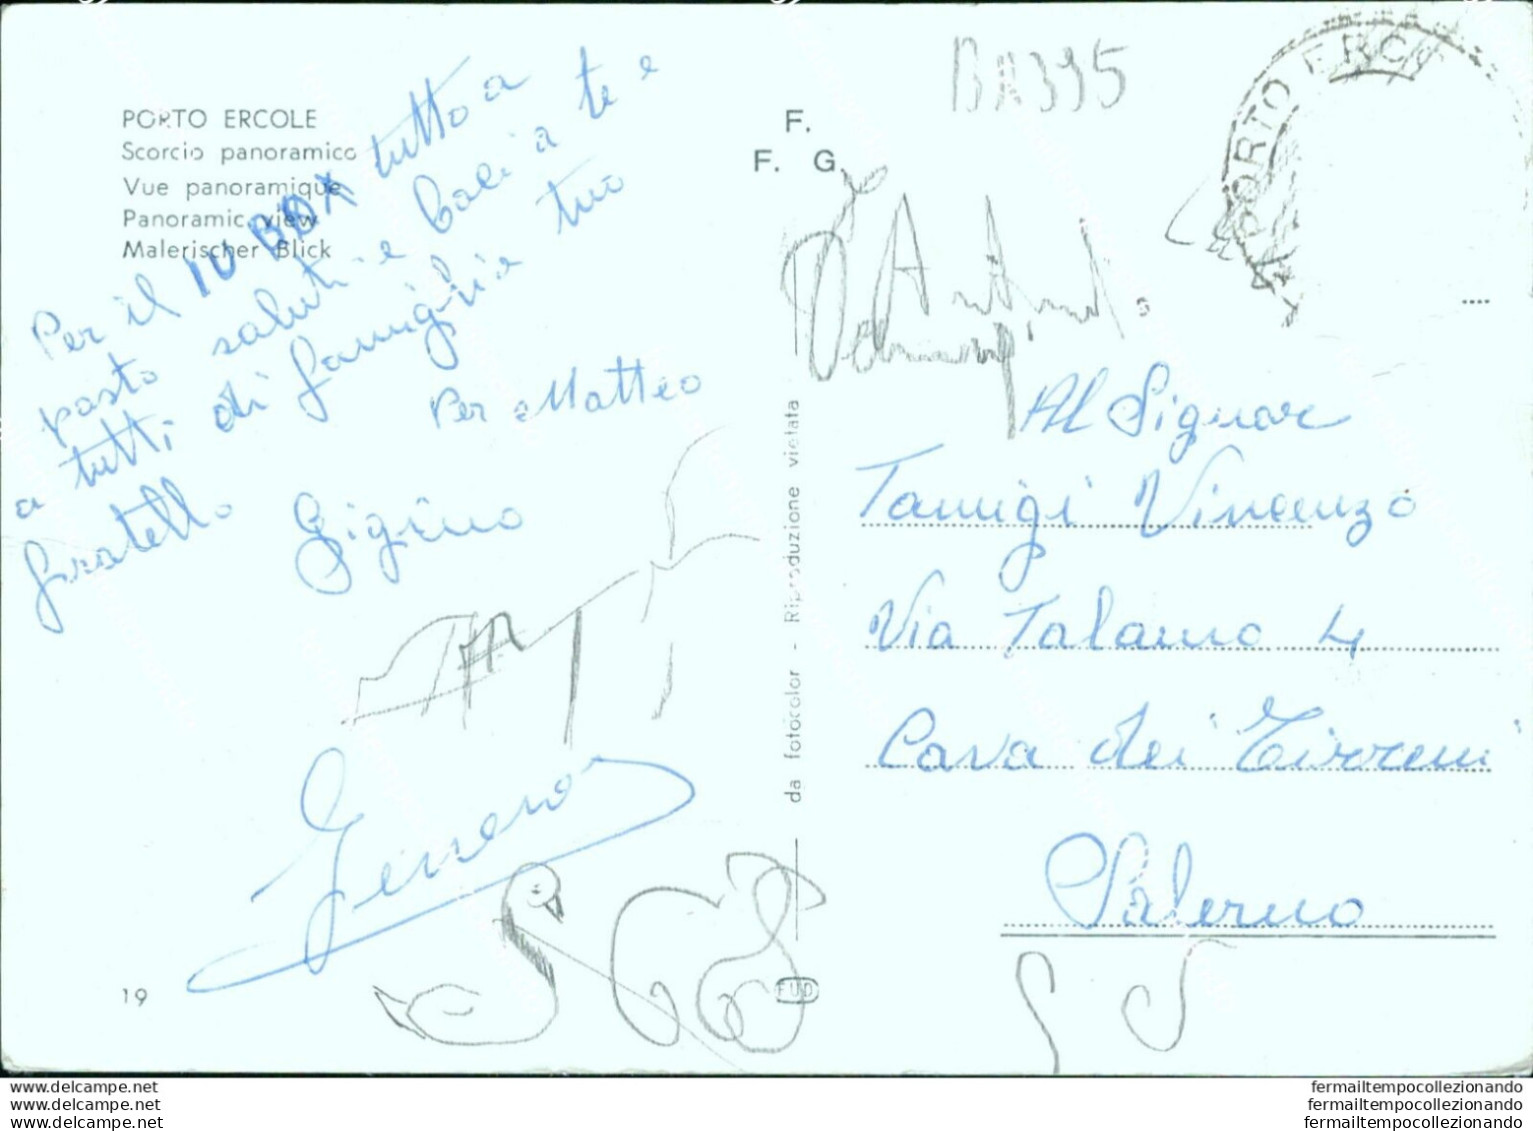 PORTO ERCOLE
Scorcio panoramico
Vue panoramique
Panoramic view
Malerischer Blick
Per il tutto a
posto saluti e baci a te e
a tutti di famiglia tuo
fratello Gigino
Per Matteo
Gennaro
19
F.
F. G.
BA395
PORTO ERCO
da fotocolor - Riproduzione vietata
FUD
Al Signor
Tamigi Vincenzo
Via Talamo 4
Cava dei Tirreni
Salerno
delcampe.net
delcampe.net
delcampe.net
fermailtempocollezionando
fermailtempocollezionando
fermailtempocollezionando